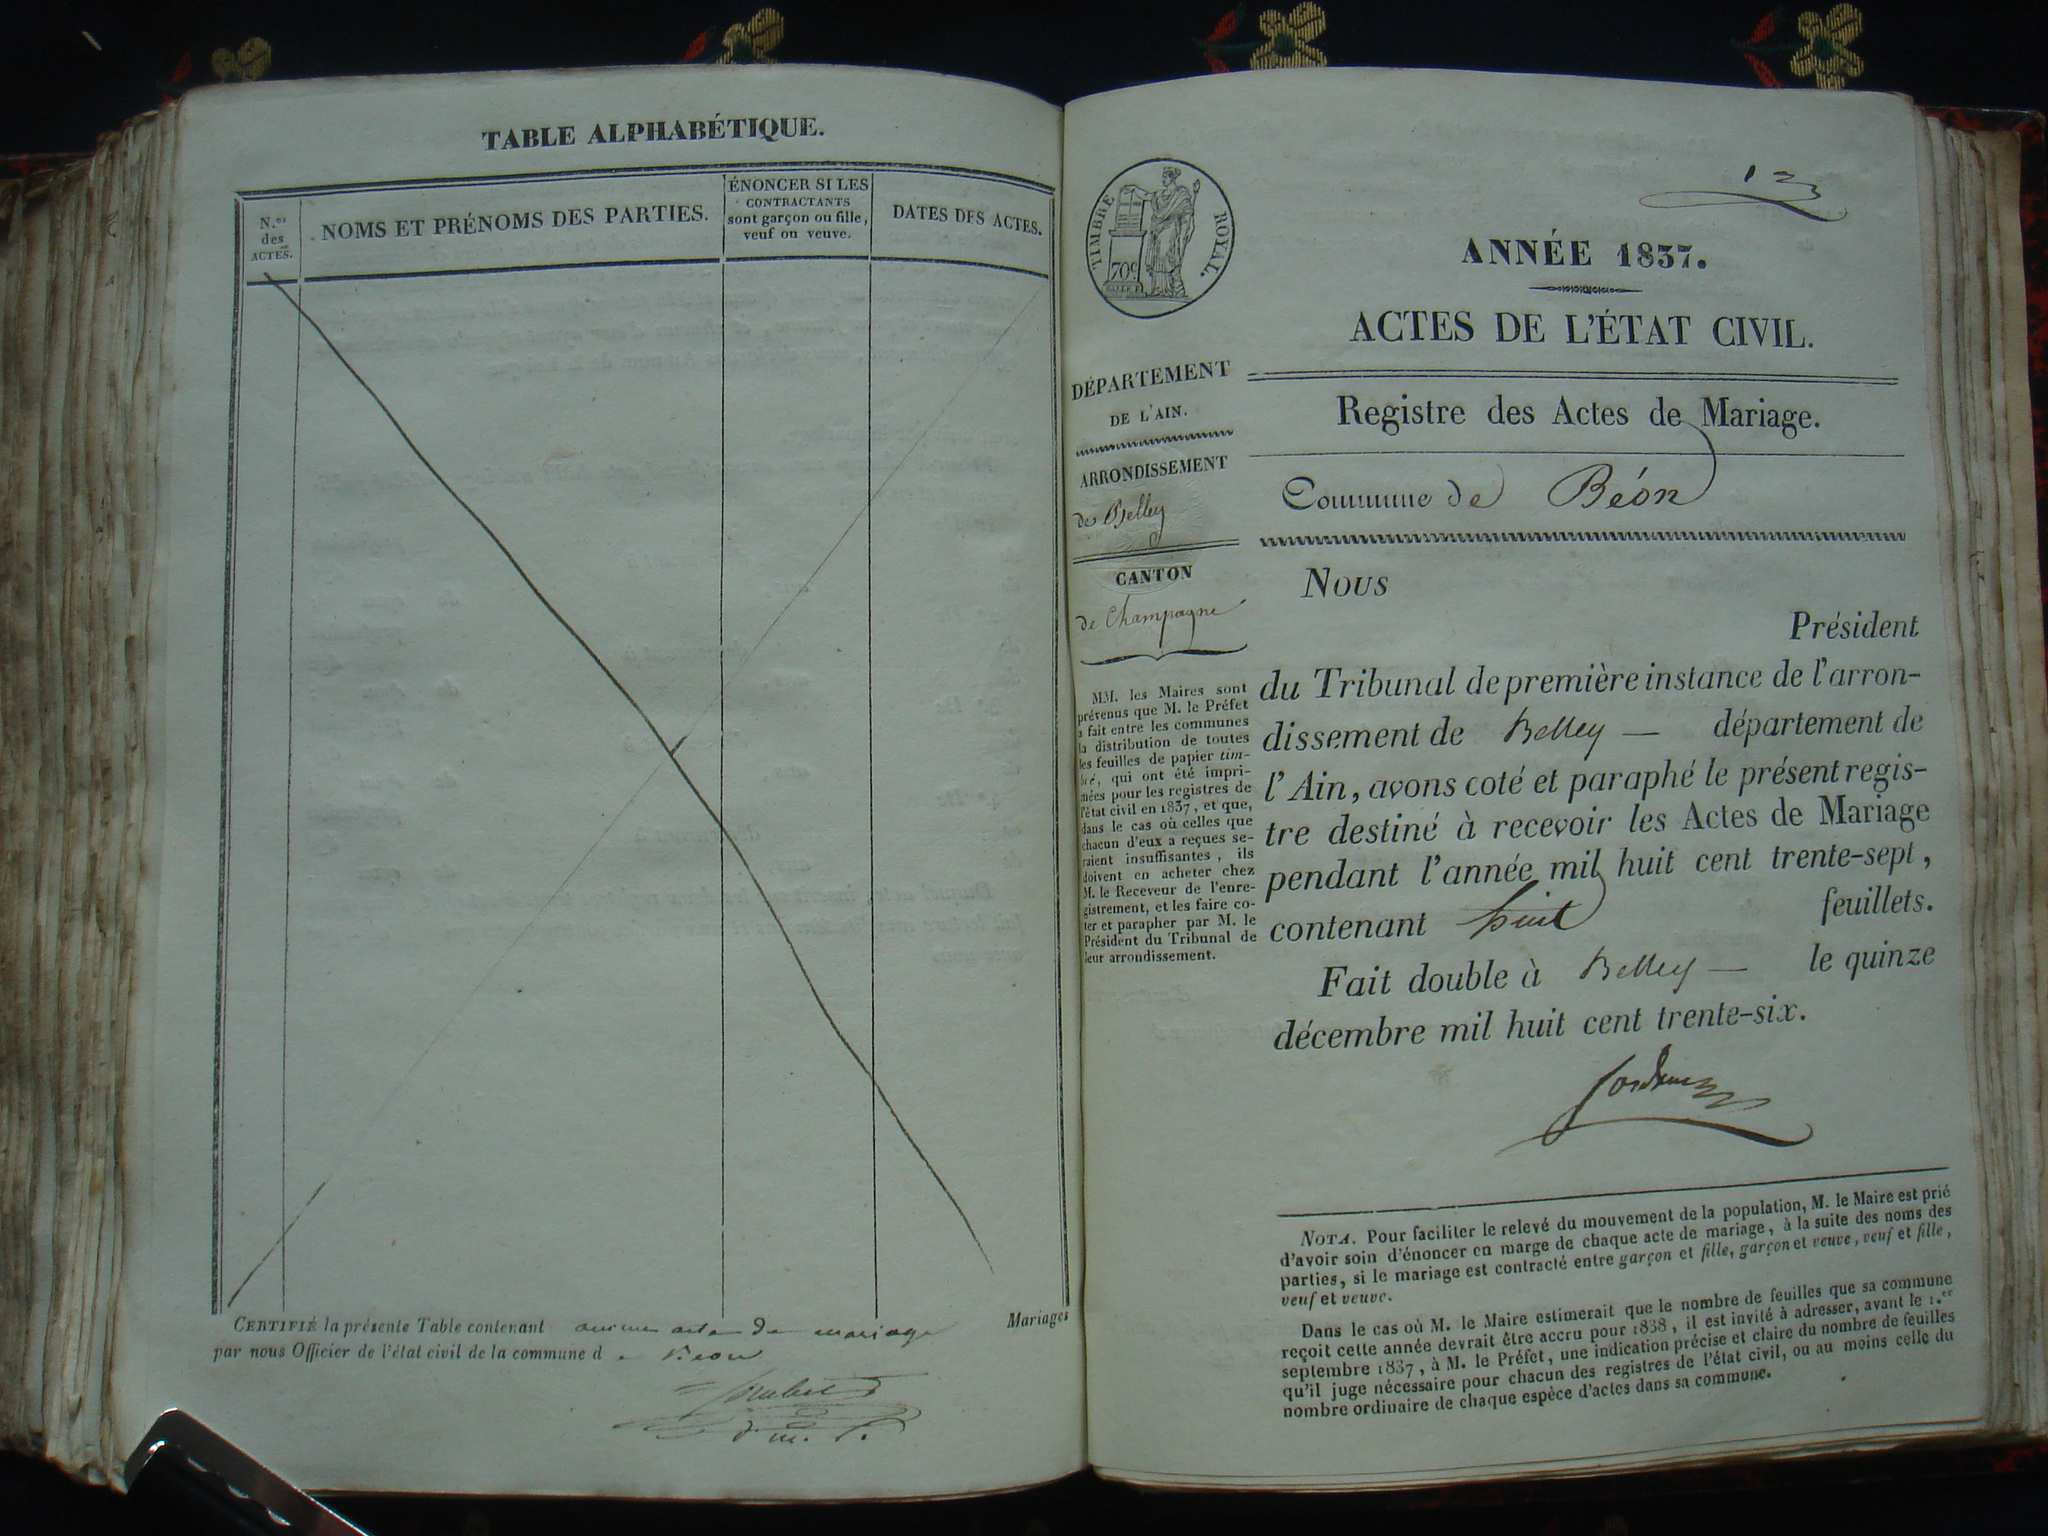 TABLE ALPHABÉTIQUE.
N.os
des
ACTES.
NOMS ET PRÉNOMS DES PARTIES.
ÉNONCER SI LES
CONTRACTANTS
sont garçon ou fille,
veuf ou veuve.
DATES DES ACTES.
CERTIFIÉ la présente Table contenant aucun acte de mariage Mariages
par nous Officier de l'état civil de la commune de Béon
TIMBRE ROYAL.
70c
ANNÉE 1837.
ACTES DE L'ÉTAT CIVIL.
Registre des Actes de Mariage.
Commune de Béon
DÉPARTEMENT
DE L'AIN.
ARRONDISSEMENT
de Belley
CANTON
de Champagne
MM. les Maires sont
prévenus que M. le Préfet
a fait entre les communes
la distribution de toutes
les feuilles de papier tim-
bré, qui ont été impri-
mées pour les registres de
l'état civil en 1837, et que,
dans le cas où celles que
chacun d'eux a reçues se-
raient insuffisantes, ils
doivent en acheter chez
M. le Receveur de l'enre-
gistrement, et les faire co-
ter et parapher par M. le
Président du Tribunal de
leur arrondissement.
Nous
Président
du Tribunal de première instance de l'arron-
dissement de Belley — département de
l'Ain, avons coté et paraphé le présent regis-
tre destiné à recevoir les Actes de Mariage
pendant l'année mil huit cent trente-sept,
contenant huit feuillets.
Fait double à Belley — le quinze
décembre mil huit cent trente-six.
NOTA. Pour faciliter le relevé du mouvement de la population, M. le Maire est prié
d'avoir soin d'énoncer en marge de chaque acte de mariage, à la suite des noms des
parties, si le mariage est contracté entre garçon et fille, garçon et veuve, veuf et fille,
veuf et veuve.
Dans le cas où M. le Maire estimerait que le nombre de feuilles que sa commune
reçoit cette année devrait être accru pour 1838, il est invité à adresser, avant le 1.er
septembre 1837, à M. le Préfet, une indication précise et claire du nombre de feuilles
qu'il juge nécessaire pour chacun des registres de l'état civil, ou au moins celle du
nombre ordinaire de chaque espèce d'actes dans sa commune.